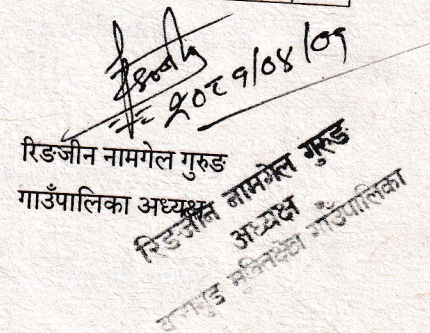 २०८१/०४/०१
रिङजीन नामगेल गुरुङ
गाउँपालिका अध्यक्ष
रिङजीन नामगेल गुरुङ
अध्यक्ष
गाउँपालिका